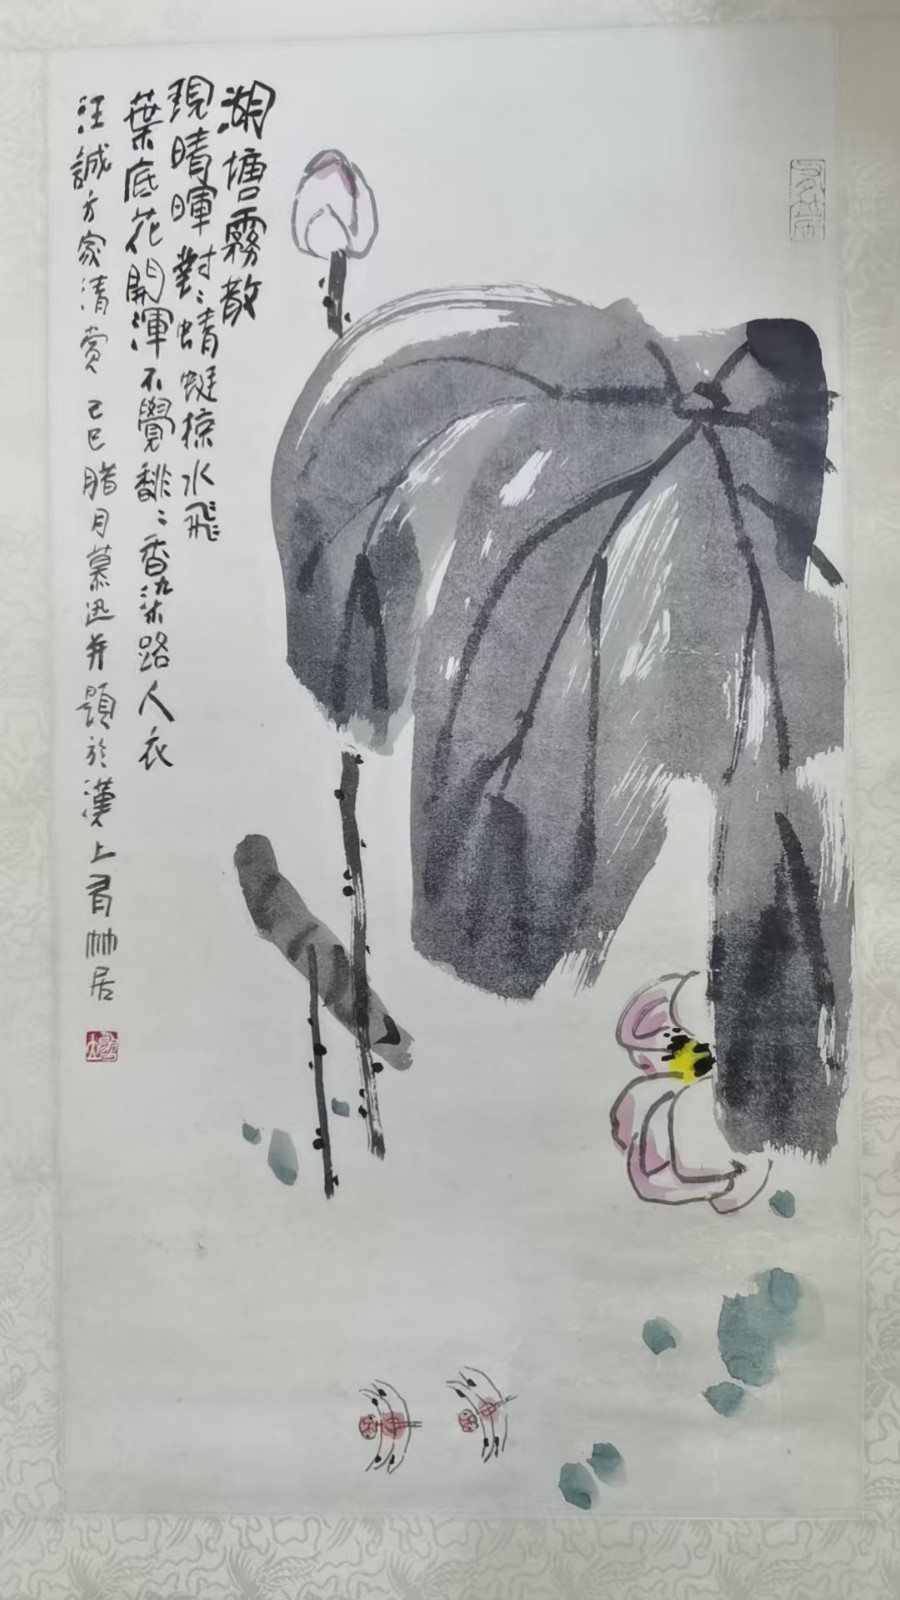 湖塘霧散
現晴暉對〻蜻蜓掠水飛
葉底花開渾不覺馡〻香染路人衣
汪誠方家清賞 己巳腊月慕迅并題於漢上有竹居